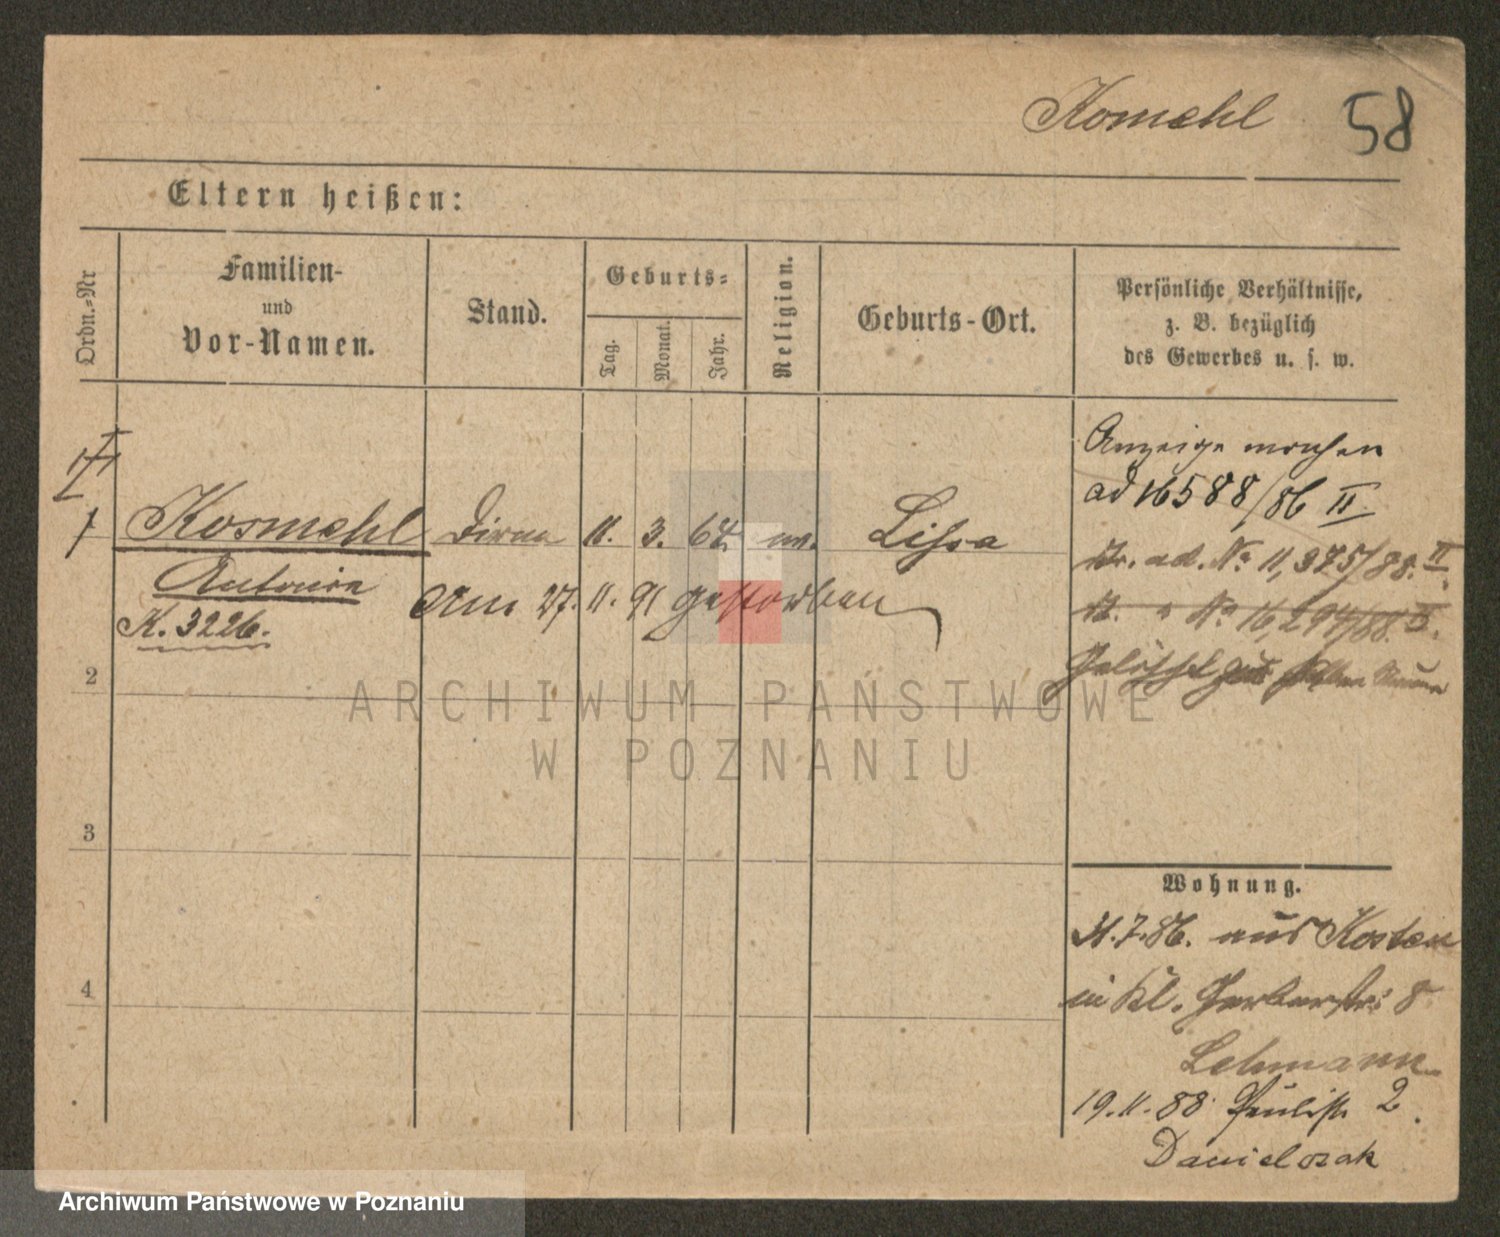 Komehl 58
Eltern heißen:
Ordn.-Nr
Familien-
und
Vor-Namen.
Stand.
Geburts-
Tag.
Monat.
Jahr.
Religion.
Geburts-Ort.
Persönliche Verhältnisse,
z. B. bezüglich
des Gewerbes u. s. w.
Anzeige machen
ad 16588/86 II
1 Kosmehl Dirne 11. 3. 64. Lissa
ad. No 11,375/88. II.
Antonie
Am 27. 11. 91 gestorben
No 16,294/88. II.
K. 3226.
Gelöscht
2
3
4
Wohnung.
31.7.86. aus Kosten
in Kl. Gerberstr. 8
Lehmann
19.11.88 Paulist. 2.
Danielczak
ARCHIWUM PAŃSTWOWE
W POZNANIU
Archiwum Państwowe w Poznaniu